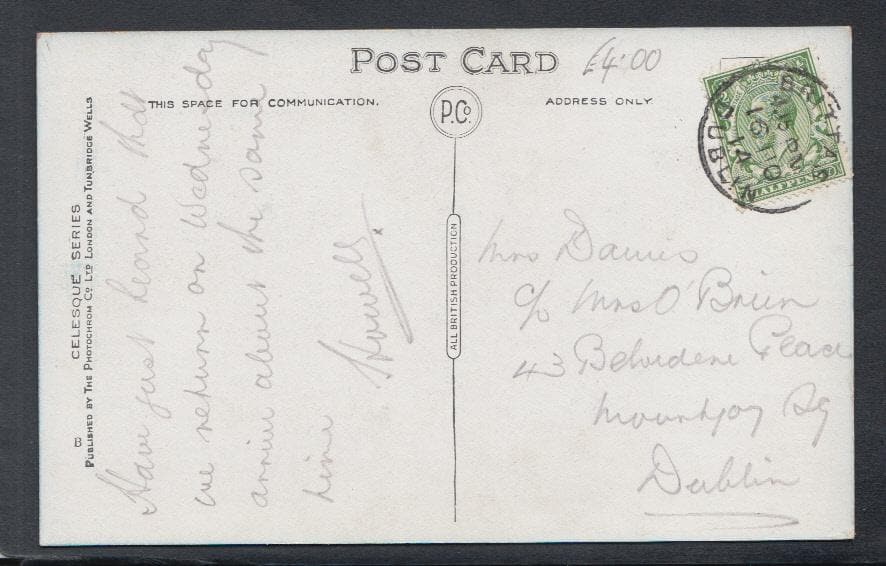 POST CARD
£4.00
THIS SPACE FOR COMMUNICATION.
P.Co.
ADDRESS ONLY.
CELESQUE SERIES
PUBLISHED BY THE PHOTOCHROM CO LTD LONDON AND TUNBRIDGE WELLS
B
Have just heard that
we return on Wednesday
arrive about the same
time Howell.
ALL BRITISH PRODUCTION
Mrs Davies
c/o Mrs O'Brien
43 Belvidere Place
Mountjoy Sq
Dublin
DUBLIN
14
HALFPENNY